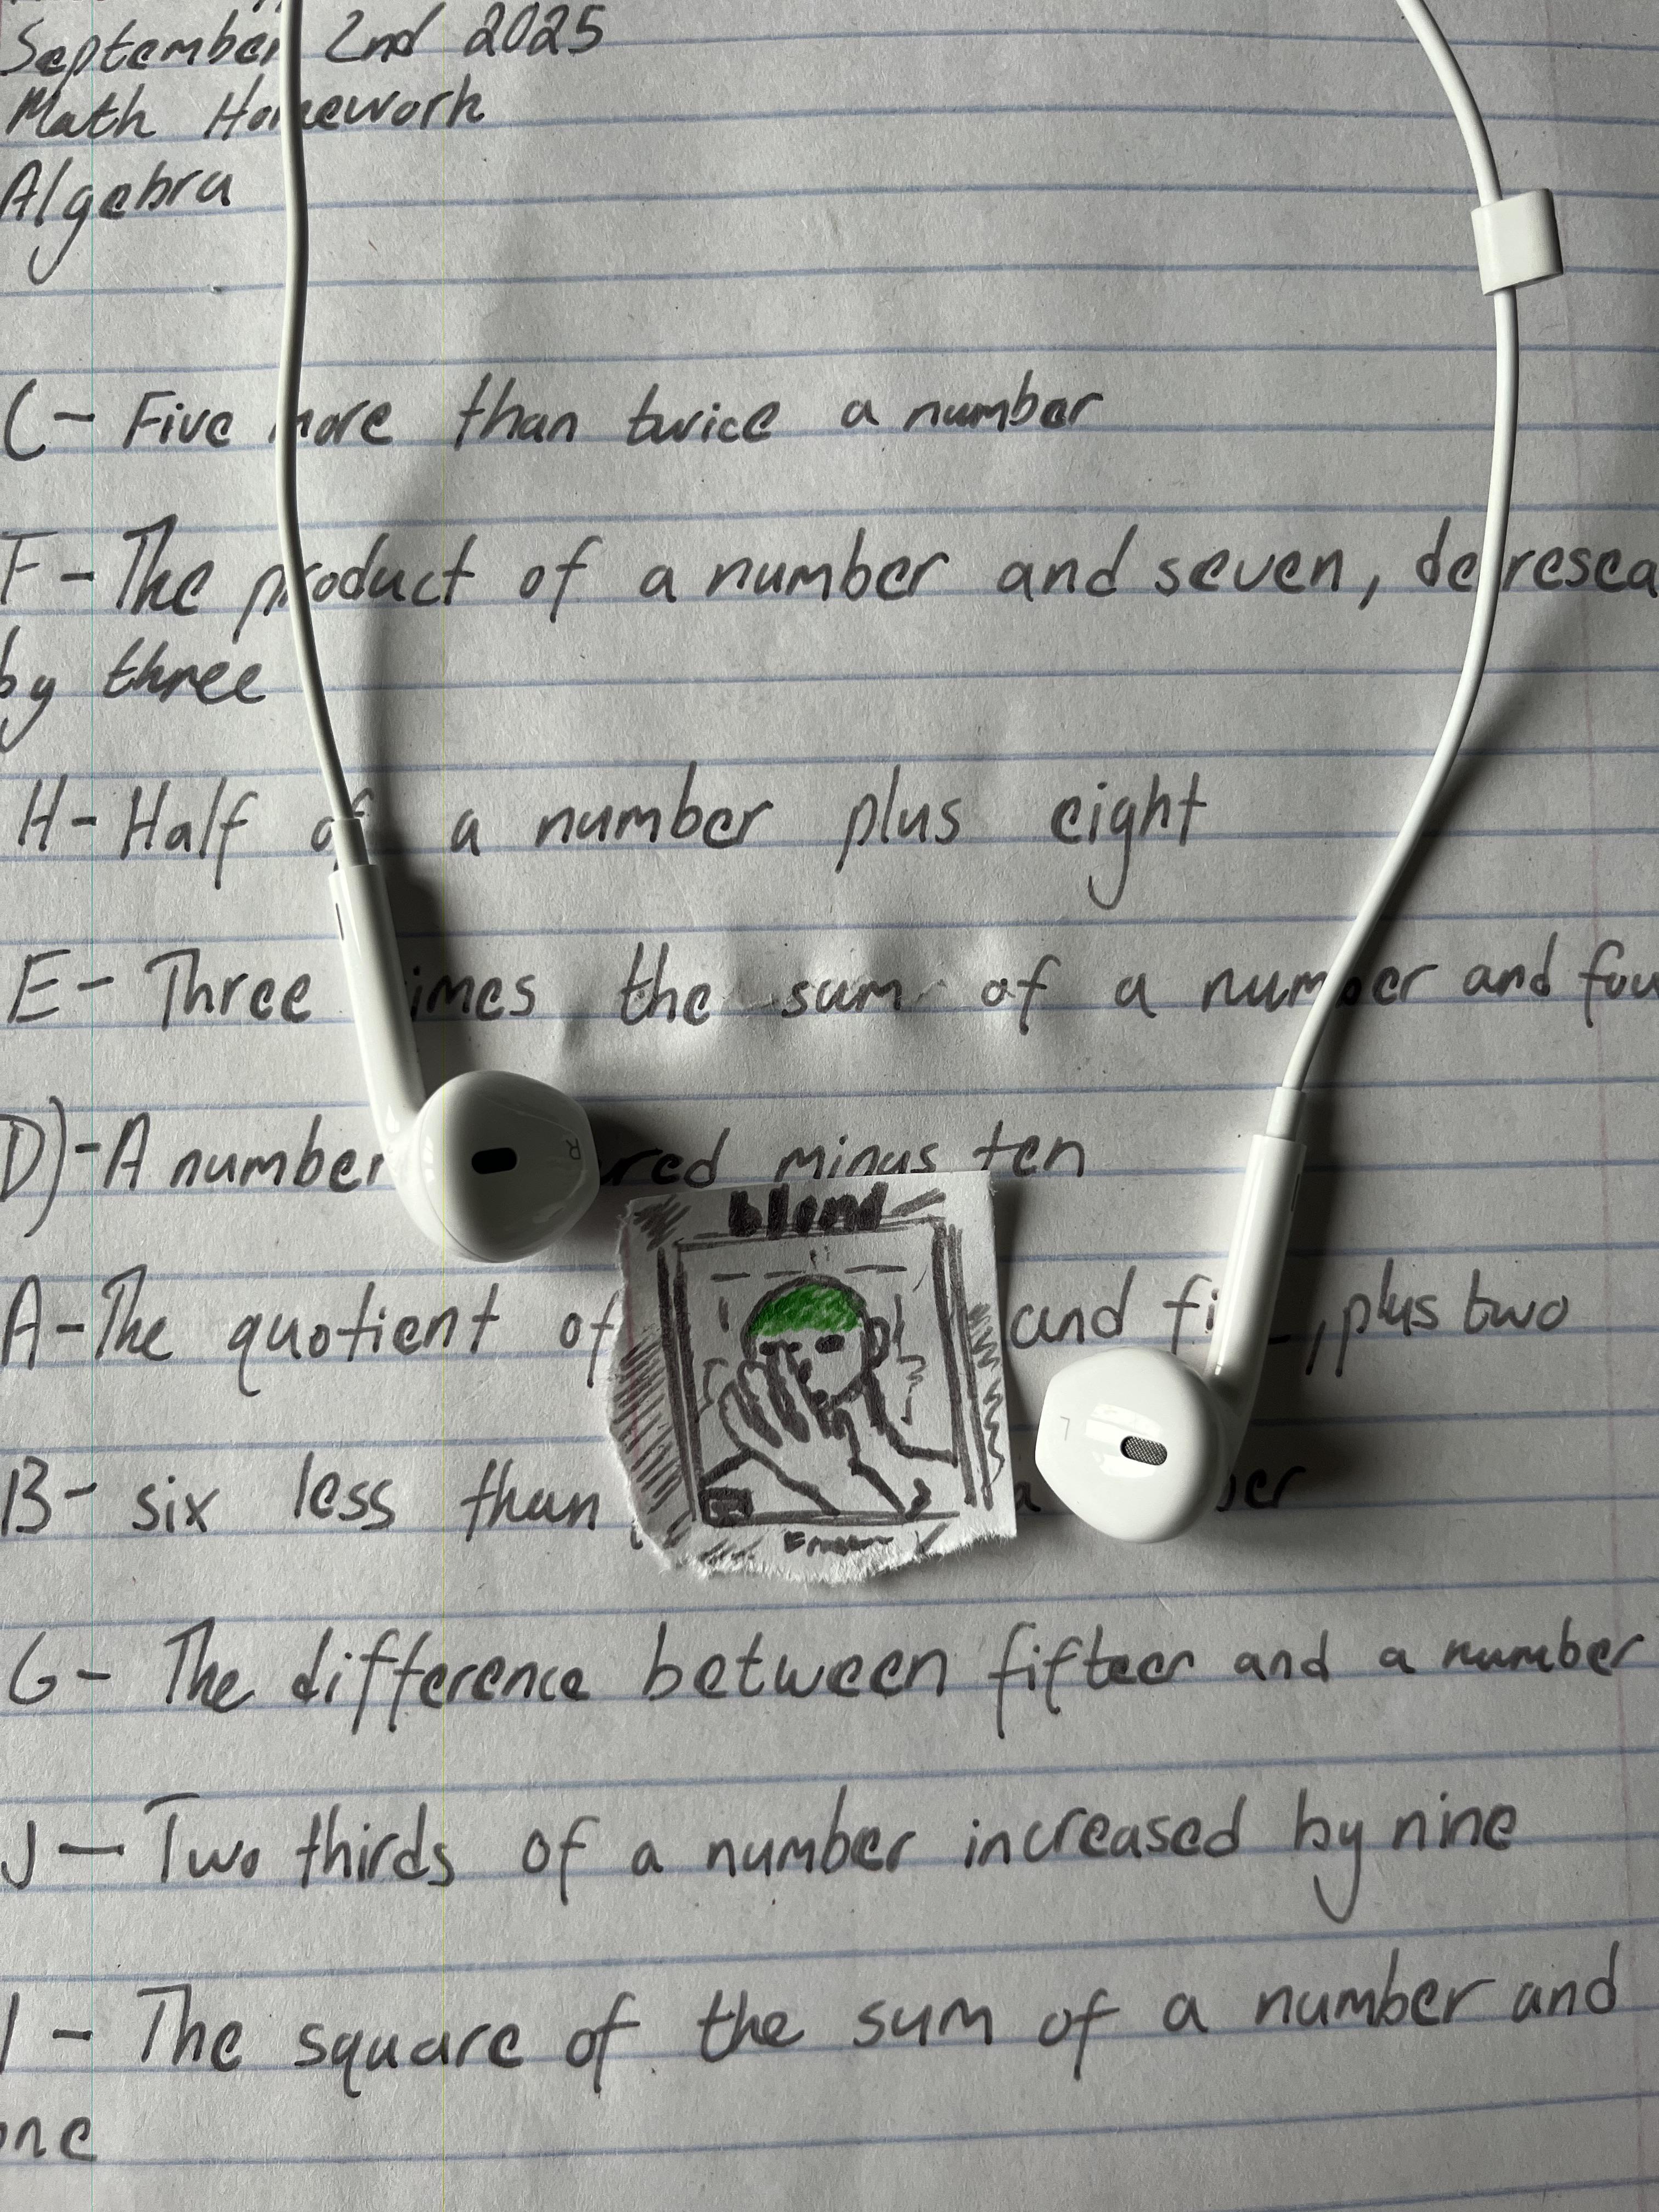 September 2nd 2025
Math Homework
Algebra
C- Five more than twice a number
F- The product of a number and seven,
by three
H- Half of a number plus eight
E- Three times the sum of a number and
D)- A number minus ten
blond
A- The quotient of and plus two
B- six less than a
G- The difference between fifteen and a number
J- Two thirds of a number increased by nine
I- The square of the sum of a number and
one
R
L